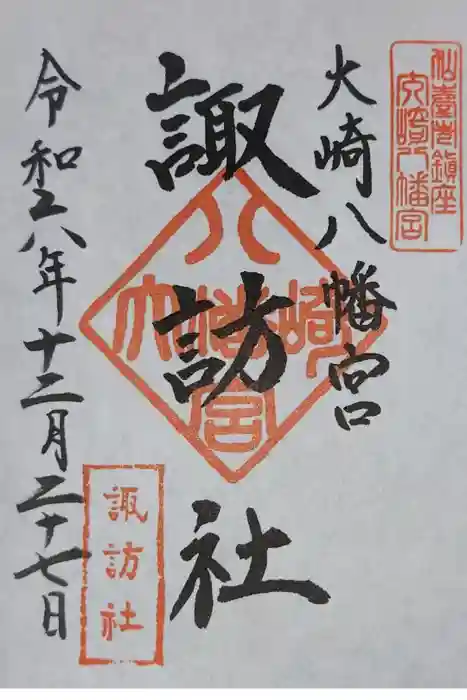 仙臺市鎮座
大崎八幡宮
大崎八幡宮
諏訪社
八
大幡崎
宮
諏訪社
令和六年十二月二十七日